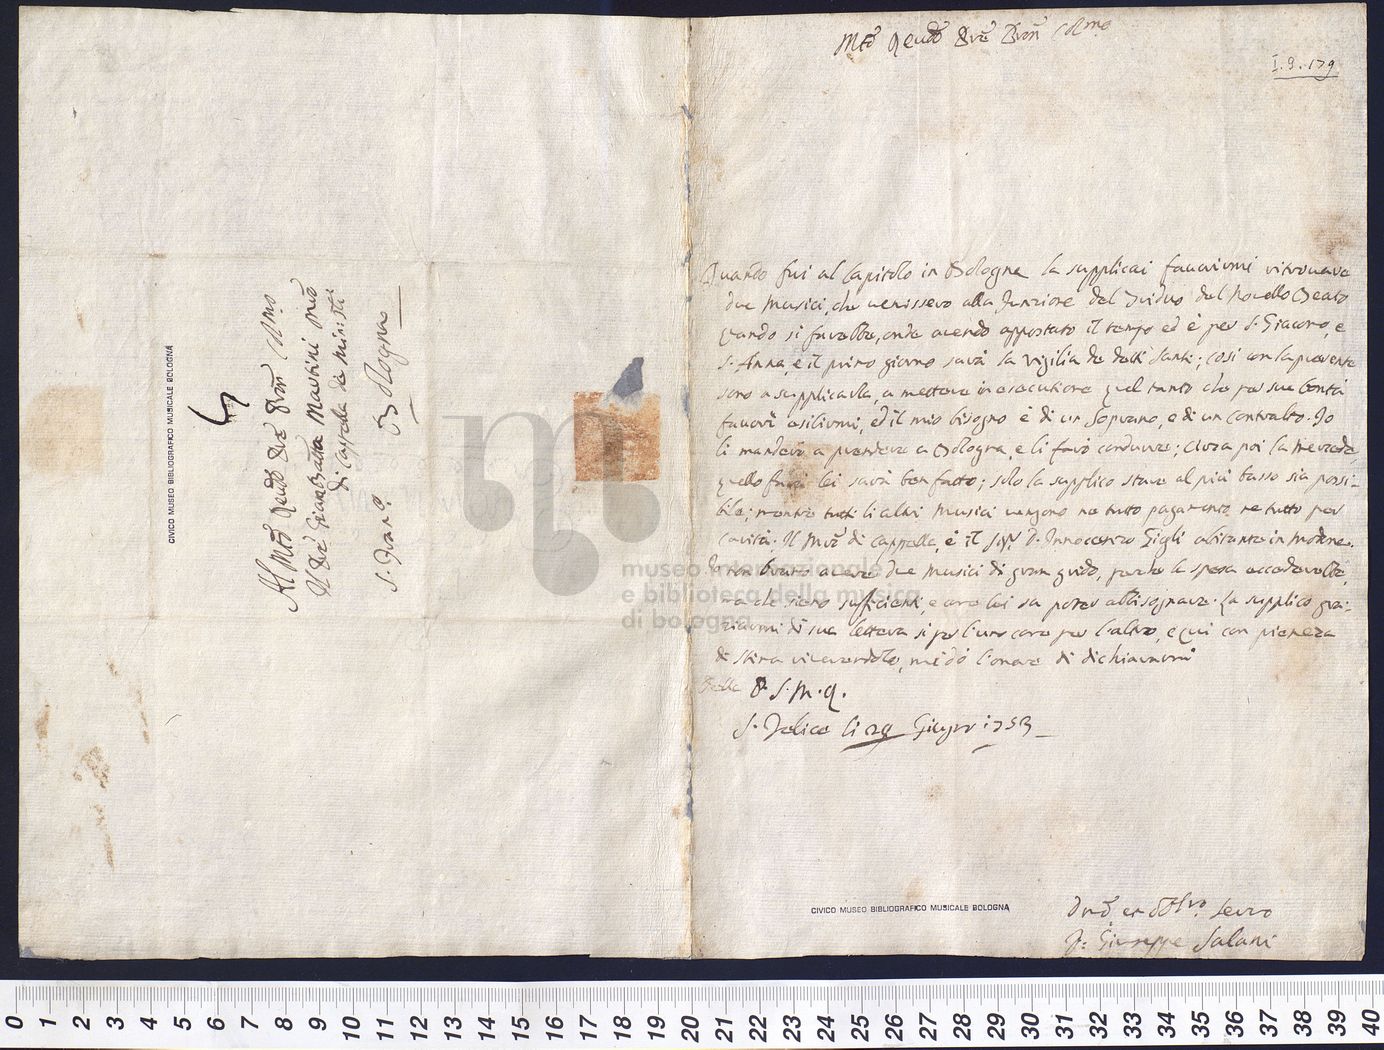 Al Mto Rendo Pre Pron Colmo
Il Pre Giambatta Martini Mro
di Cappella de Minísti
S. Franco Bologna
CIVICO MUSEO BIBLIOGRAFICO MUSICALE BOLOGNA
Mto Rendo Pre Pron Colmo
I. 9. 179
Quando fui al Capitolo in Bologna la supplicai favorirmi ritrovare
due Musici, che venissero alla funzione del Triduo del novello Beato
quando si farebbe, onde avendo appostato il tempo ed è per S. Giacomo, e
S. Anna e il primo giorno sarà la Vigilia de detti Santi; così con la presente
sono a supplicarla, a mettere in esecutione quel tanto che per sua bontà
favorì esibirmi, ed il mio bisogno è di un Soprano, e di un contralto. Io
li manderò a prendere a Bologna, e li farò condurre; circa poi la mercede,
quello farà lei sarà ben fatto; solo la supplico stare al più basso sia possi-
bile; mentre tutti li altri Musici vengono ne tutto pagamento, ne tutto per
carità. Il Mro di Cappella, è il Sigr D. Innocenzo Gigli abitante in Modena.
Io non bramo avere due Musici di gran grido, perche la spesa eccederebbe,
ma che sieno sufficienti, e come lei sa poter abbisognare. La supplico gra-
ziarmi di sua lettera sì per l'uno come per l'altro, e qui con pienezza
di stima riverendolo, mi dò l'onore di dichiararmi
Della P. S. M. R.
S. Felice li 29 Giugno 1753
CIVICO MUSEO BIBLIOGRAFICO MUSICALE BOLOGNA
Dmo, ed Obblmo Servo
F. Giuseppe Salani
museo internazionale
e biblioteca della musica
di bologna
0 1 2 3 4 5 6 7 8 9 10 11 12 13 14 15 16 17 18 19 20 21 22 23 24 25 26 27 28 29 30 31 32 33 34 35 36 37 38 39 40